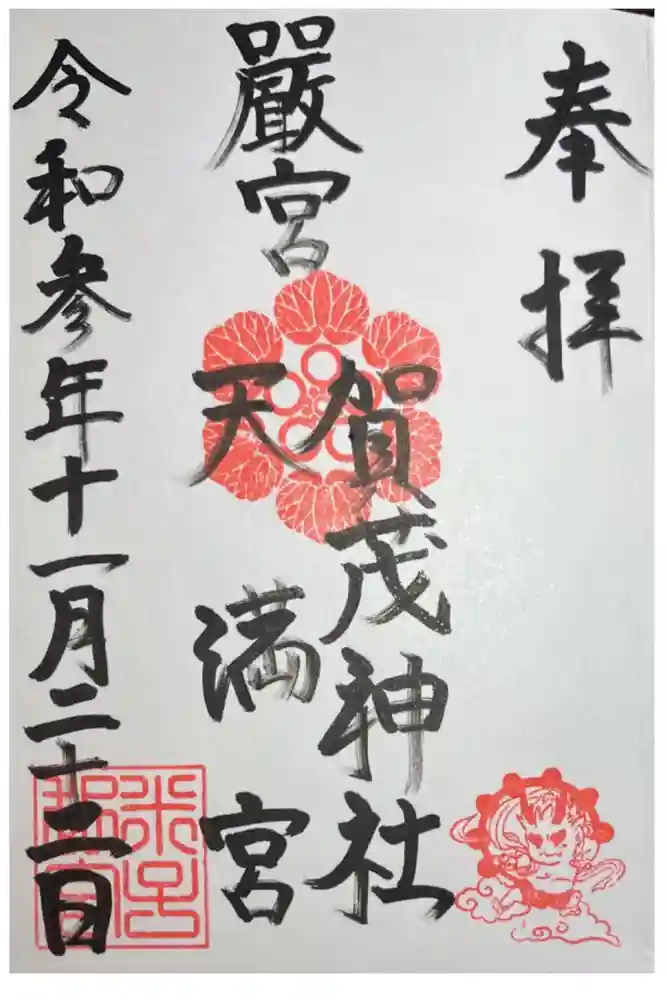 奉拝
嚴宮
賀茂神社
天満宮
令和参年十一月二十二日